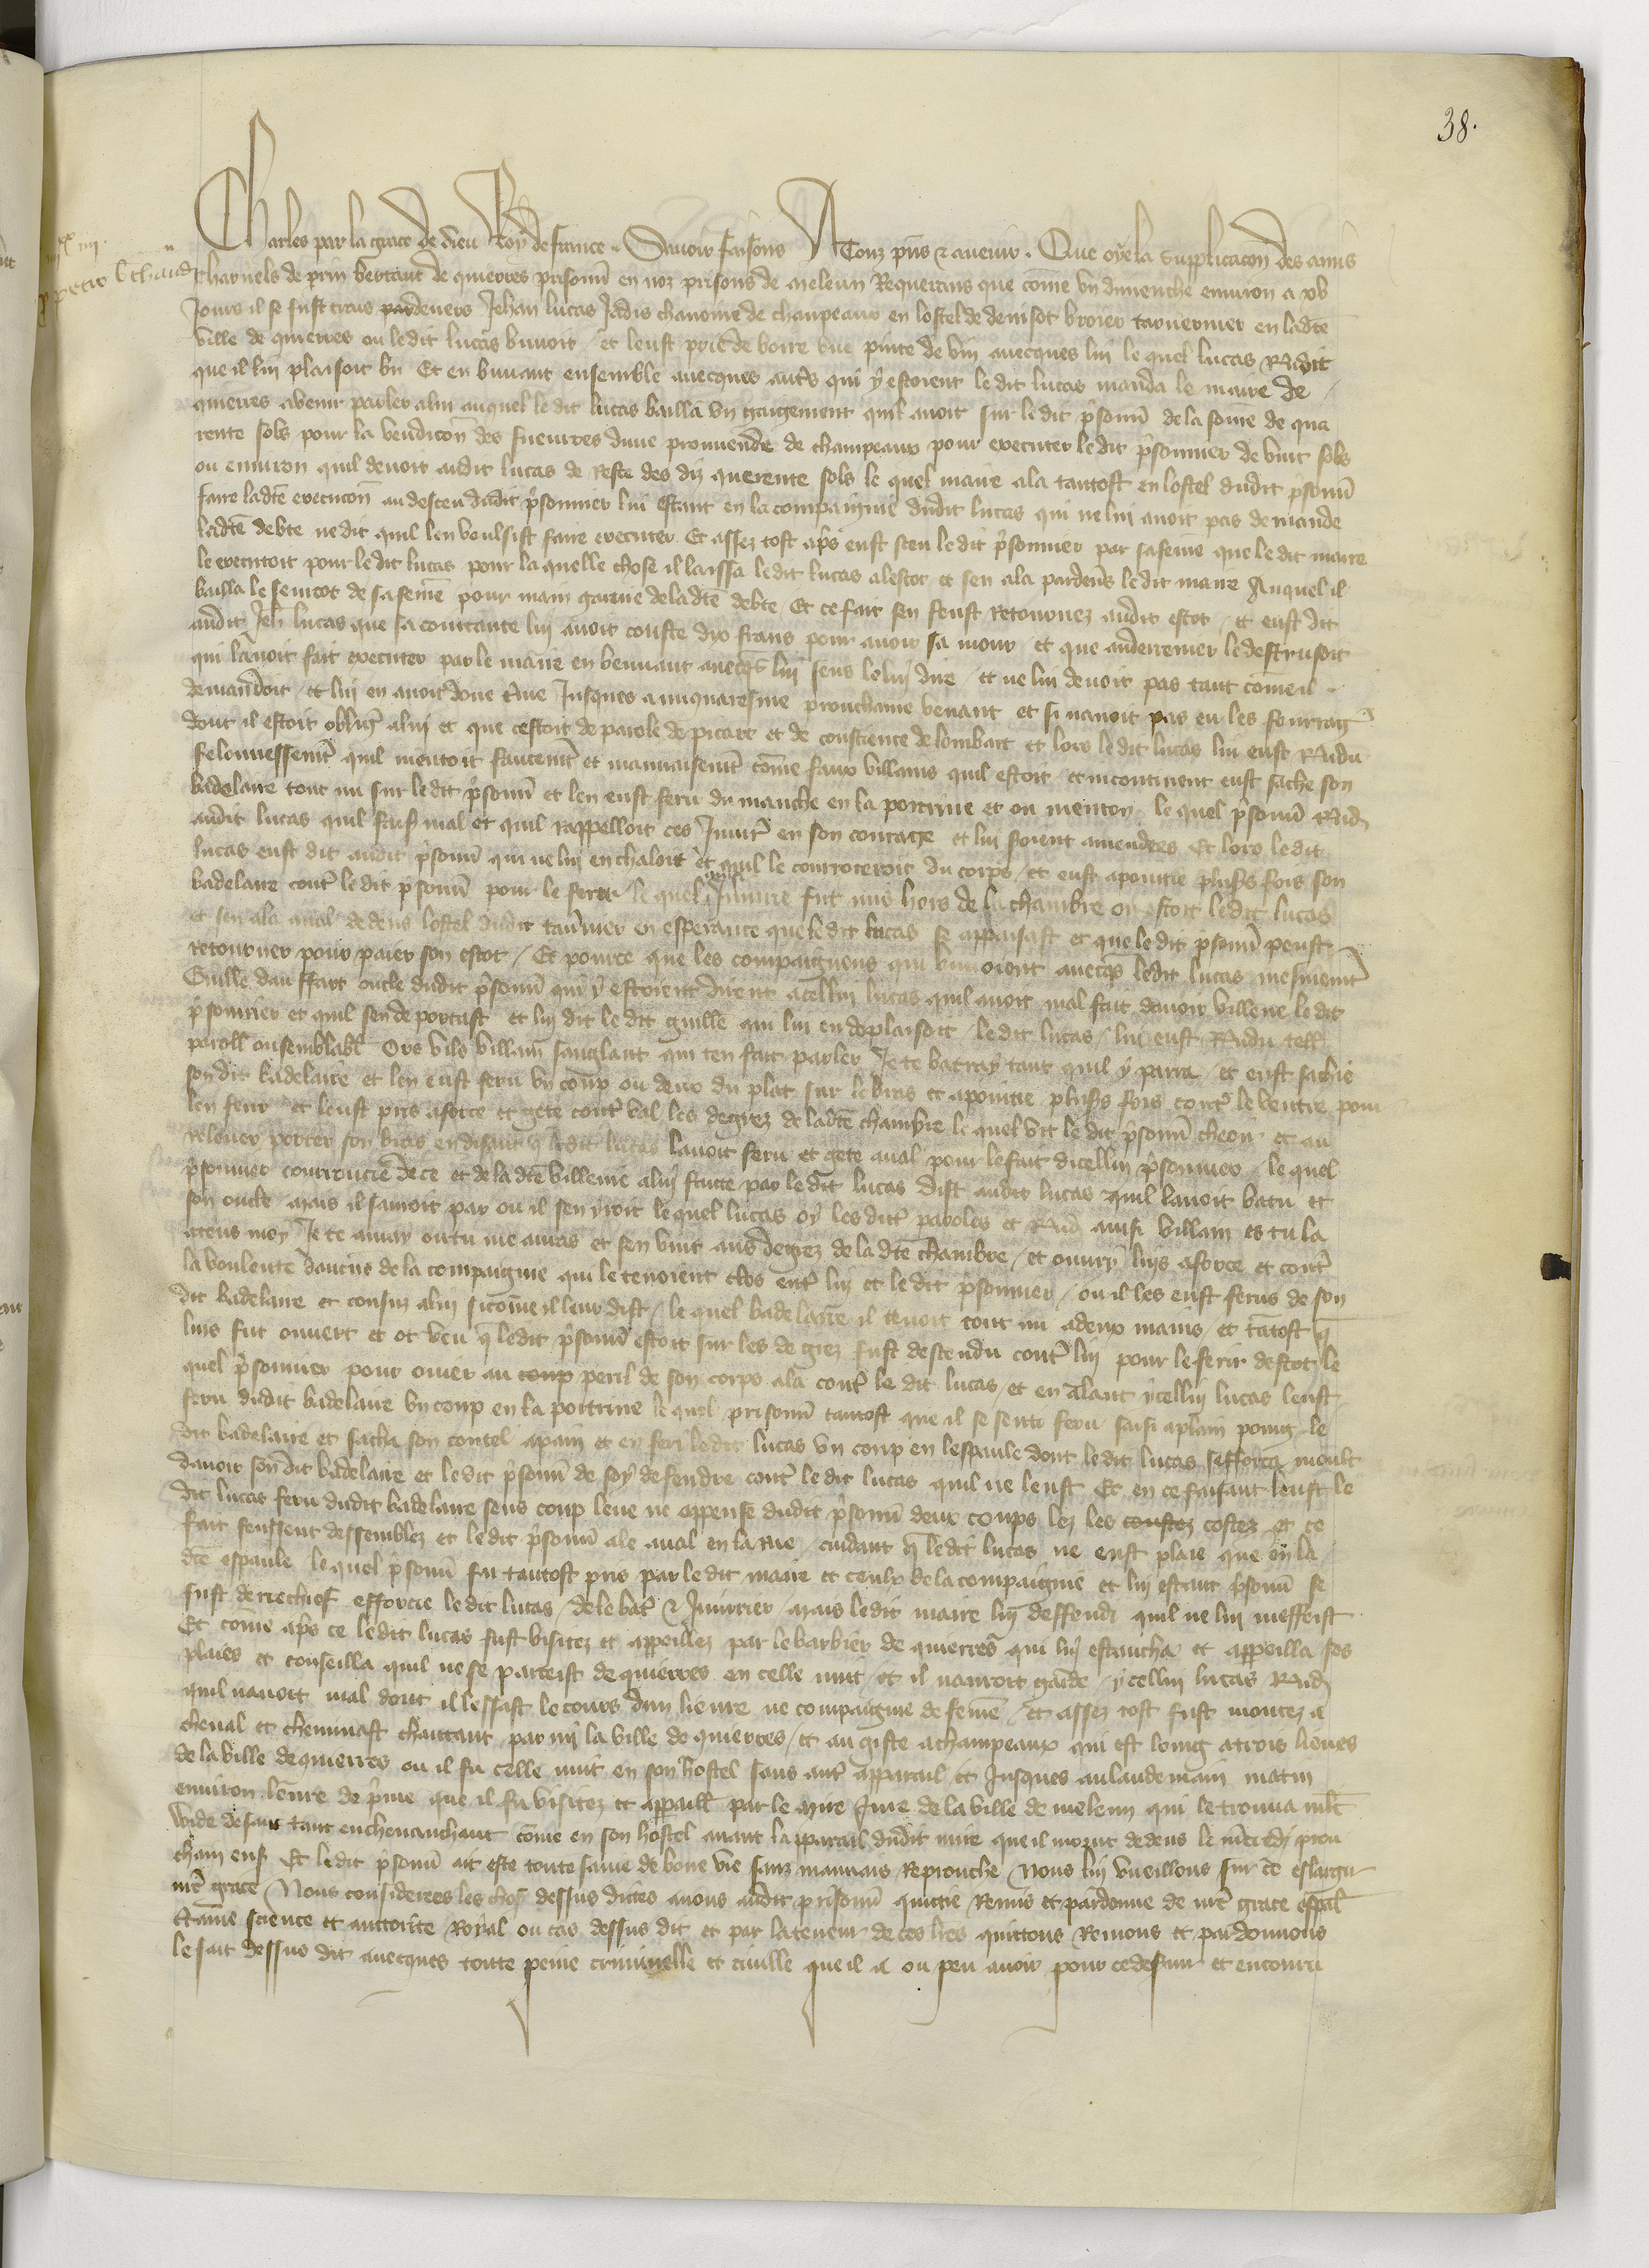 38.
Charles par la grace de dieu Roy de france. Savoir faisons A Touz pns & avenir. Que oye la supplicacon des amis
charnels de prin bertaut de quierres prisonn en noz prisons de meleun Requerans que come un dimenche environ a xv
Jours il se fust trais pardevers Jehan lucas Jadis chanoine de champeaux en lostel de denisot broier tavernier en ladte
ville de quierres ou ledit lucas buvoit / et leust prie de boire une pinte de vin avecques lui le quel lucas Rndit
que il lui plaisoit bn Et en buvant ensemble avecques auts qui y estoient le dit lucas manda le maire de
quierres a venir parler a lui auquel le dit lucas bailla un gaigement quil avoit sur le dit psonn de la some de qua
rente sols pour la vendicon des fueurres dune prouvende de champeaux pour executer le dit psonnier de vint sols
ou environ quil devoit audit lucas de Reste des diz querente sols le quel maire ala tantost en lostel dudit psonn
faire ladte execucon au desceu dudit psonnier lui estant en la compaignie dudit lucas qui ne lui avoit pas demande
ladte debte ne dit quil len voulsist faire executer Et assez tost aps eust sceu le dit psonnier par sa feme que le dit maire
le executoit pour le dit lucas pour la quelle chose il laissa le dit lucas a lescot et sen ala pardevs le dit maire Auquel il
bailla le seurcot de sa feme pour main garnie de ladte debte Et ce fait sen feust Retournez audit escot / et eust dit
audit Jeh lucas que sa cointance lui avoit couste dix frans pour avoir sa mour / et que au derrenier le destruisoit
qui lavoit fait executer par le maire en bevvant avecqs lui sens le lui dire / et ne lui devoit pas tant come il
demandoit / et lui en avoit done tme Jusques a miquaresme prouchaine venant et si navoit pas eu les fourrag
dont il estoit oblig a lui et que cestoit de parole de picart et de conscience de lombart et lors le dit lucas lui eust Rndu
felonnessemt quil mentoit faucemt et mauvaisemt come faux villains quil estoit / et incontinent eust sache son
badelaire tout nu sur le dit psonn et len eust feru du manche en la poitrine et ou menton le quel psonn Rnd
audit lucas quil faisoit mal et quil rappelloit ces Iniur en son courage et lui soient amendees Et lors le dit
lucas eust dit audit psonn qui ne lui en chaloit et quil le courroceroit du corps / et eust apointie plusrs fois son
badelaire cont le dit psonn pour le ferir le quel fut mis hors de la chambre ou estoit le dit lucas
et sen ala aval dedens lostel dudit tavnier en esperance que le dit lucas se appaisast et que le dit psonn peust
retourner pour paier son escot / Et pource que les compaignons qui buvoient avecqs le dit lucas mesmemt
Guille dauffart oncle dudit psonn qui y estoient dirent a icellui lucas quil avoit mal fait davoir villene le dit
psonnier et quil sen deportast et lui dit le dit guille qui lui en desplaisoit / le dit lucas / lui eust Rndu tell
paroll ou semblabl Ors vilx villain sanglant qui ten fait parler Je te batray tant quil y parra / et eust sachie
sondit badelaire et len eust feru un coup ou deux du plat sur le bras et apointie plusrs fois cont le ventre pour
len ferir et leust pris a force et gete cont val les degrez de ladte chambre le quel vit le dit psonn cheoir et au
relever porter son bras en disant q le dit lucas lavoit feru et gete aval pour le fait dicellui psonnier / le quel
psonnier courroucie de ce et de la dte villenie a lui faicte par le dit lucas dist audit lucas quil lavoit batu et
son oncle mais il savoit par ou il sen yroit le quel lucas oy les dict paroles et Rnd ainsi villain es tu la
atens moy Je te auray ou tu me auras et sen vint aus degrez de la dte chambre / et ouvry luys a force et cont
la voulente daucuns de la compaignie qui le tenoient clos ent lui et le dit psonnier / ou il les eust ferus de son
dit badelaire et cousin a lui sicome il leur dist / le quel badelaire il tenoit tout nu a deux mains / et tatost q
luis fut ouvert et ot veu q ledit psonn estoit sur les degrez fust descendu cont lui pour le ferir destoc / le
quel psonnier pour obvier au coup peril de son corps ala cont le dit lucas / et en alant ycellui lucas leust
feru dudit badelaire un coup en la poitrine le quel prisonn tantost que il se senti feru saisi a plain poing le
dit badelaire et sacha son coutel a pain et en feri le dit lucas un coup en lespaule dont le dit lucas sefforca moult
davoir son dit badelaire et le dit psonn de soy defendre cont le dit lucas quil ne leust Et en ce faisant leust le
dit lucas feru dudit badelaire sens coup leve ne appense dudit psonn deux coups lez les coustez costez et ce
fait feussent dessemblez et le dit psonn ale aval en la rue / cuidant q le dit lucas ne eust plaie que en la
dte espaule le quel psonn fu tantost pris par le dit maire et ceulx de la compaignie et lui estant psonn se
fust derrechief efforcie le dit lucas / de le bat & Iniurier / mais le dit maire lui deffendi quil ne lui meffeist
Et come aps ce le dit lucas fust visitez et appeillez par le barbier de quierres qui lui estancha et appeilla ses
plaies et conseilla quil ne se partesist de quierres en celle nuit / et il nauroit garde / ycellui lucas Rnd
quil navoit mal dont il lessast le cours dun lievre ne compaignie de feme / et assez tost fust montez a
cheval et cheminast chantant par my la ville de quierres / et au giste a champeaux qui est loing a trois lieues
de la ville de quierres ou il fu celle nuit en son hostel sans aut appareil et Jusques au landemain matin
environ leure de pme que il fu visitez et appaill par le mire Jure de la ville de meleun qui le trouva mlt
wide de sanc tant en chevauchant come en son hostel avant lappareil dudit mire que il morut dedens le mecredi prou
chain ens Et le dit psonn ait este toute sa vie de bone vie sans mauvais Reprouche / Nous lui vueillons sur ce eslargir
nre grace / Nous considerees les chos dessus dictes avons audit prisonn quictie Remis et pardonne de nre grace espal
ctaine science et auctorite Royal ou cas dessus dit et par la teneur de ces lres quittons Remons et pardonnons
le fait dessus dit avecques toute peine criminelle et civille que il a ou peu avoir pour ce desservi et encouru